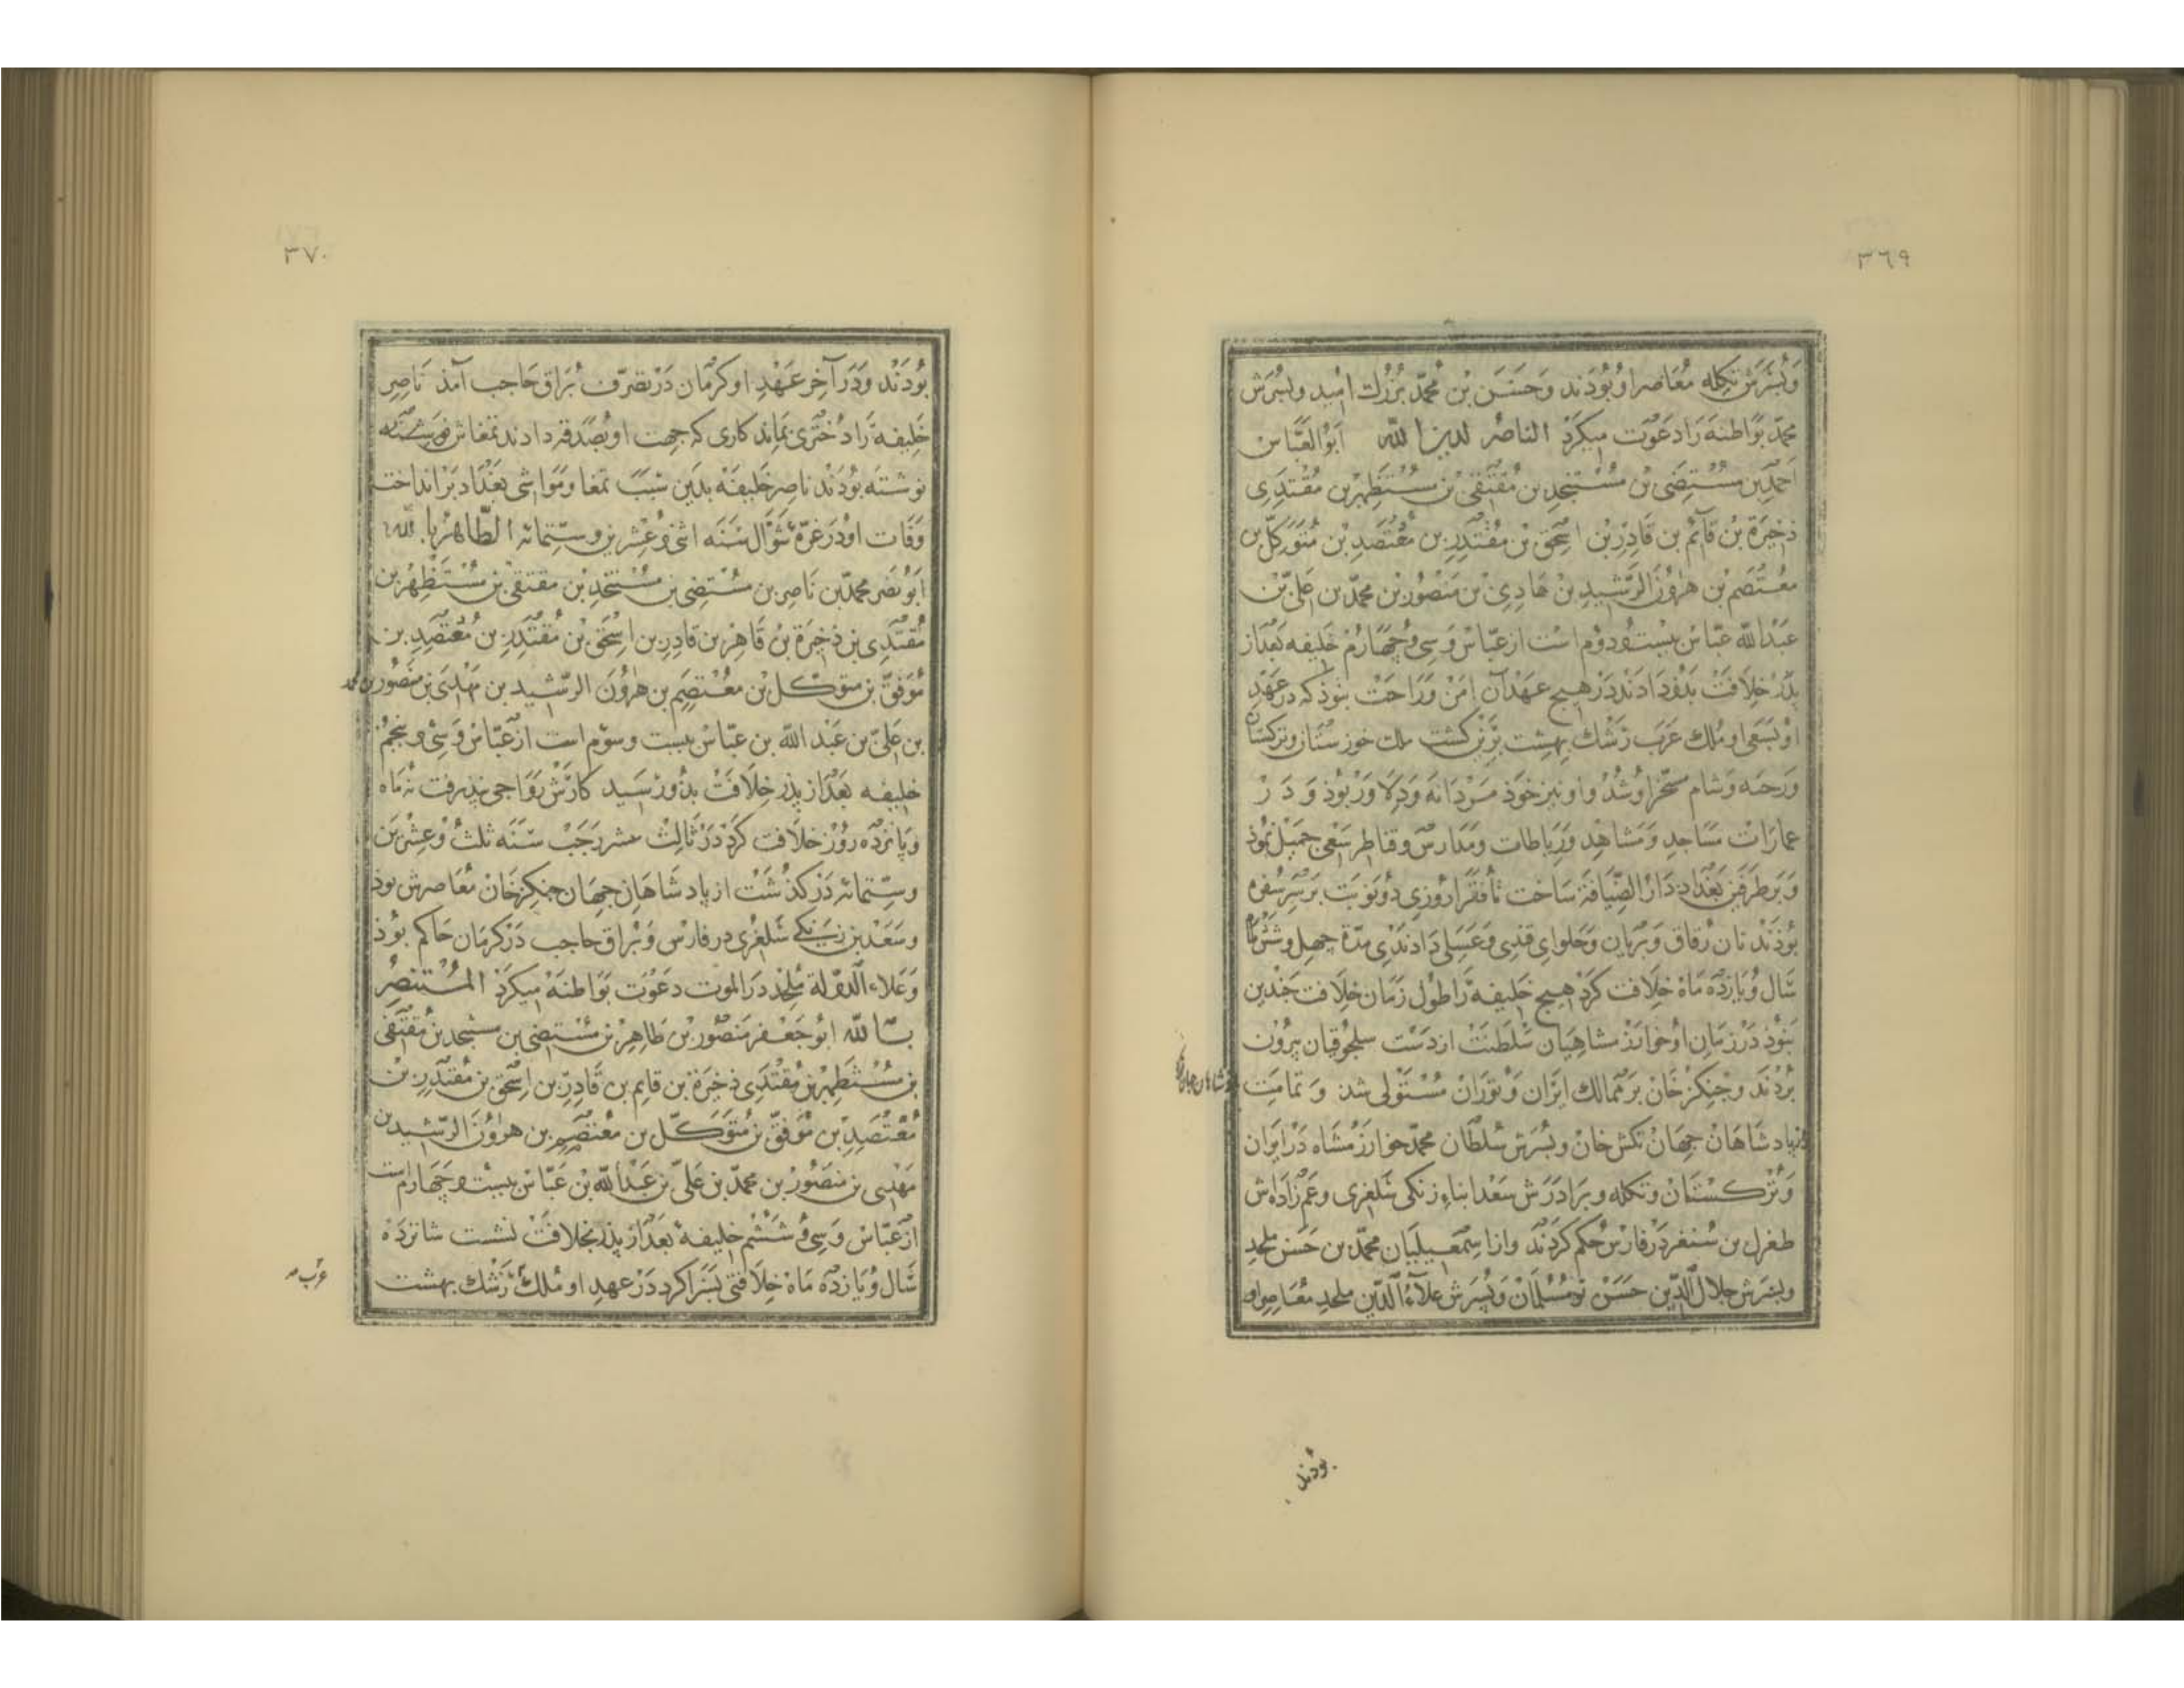 ٣٦٩
وَپُسَرَش تکله مُعَاصر اوُ بُودَند وَحَسَن بْن مُحمّد بُزُرك امُيد وپسُرَش
محمّد بَوَاطنه رَا دَعوَت میکرَدْ الناصُر لدین الله اَبوُ العَبّاس
اَحمَدبن مسُتضِی بن مُستَنجِد بن مُقتَفی بن مسُتَظهِر بن مُقْتَدِی
ذخیَرَة بْن قآئم بن قَادِرْ بْن اسِحٰق بْن مُقتَدِر بن مُعتَصَد بْن مُتَوَکّل بن
معُتَصَم بْن هرٰوُن الرَّشیدِ بْن هَادِی بْن مَنْصوُر بْن محمّد بن عَلیّ بْن
عَبْدُ الله عَبّاس بیست ودوُم اسَت از عبّاس وَسِی وُچَهارُم خَلیفه بَعْد از
پدَرْ خلَافَت بدُو دَادَند دَرْ هیچ عَهْد آن امَن وَرَاحَتْ نبوُذ که در عَهْدِ
اوُ بَسَعی او مُلك عَرَب رَشْك بهشت بَرین کشت ملك خوزستَان وترکستان
وَرَحبَه وَشام مسَخّر اوُ شُدْ واو نیز خوَذ مَرْدانَه وَدِلَاوَرْ بُوذ وَ دَ رْ
عمارَات مَسَاجد وَمَشاهِد وَرَباطات وَمَدَارسْ وقناطِر سَعْی جَمیل نمُوذ
وَبَرطرَفین بَغْدَاد دَارُ الضّیَافَة سَاخت تا فُقَرَا رُوزی دُو نَوبَت بَرسَر سُفره
بُوذَنْد نان رُقاق وَبرَیان وَحَلوای قندی وَعَسَلی دَادندَی مدّة چهل وشش
سَال وُیازدَه مَاه خلَافت کرَدْ هیچ خلَیفه رَا طول زَمَان خلافَت چَندین
نبَوُذ دَرْ زمَان اوُ خوارَزمشاهیَان سَلطنَت ازْ دَسْت سلجُوقیان بیرُون
بُرْدندَ وَچنکزْ خان بَر مَمالك ایرَان وَتوُرَان مُسْتَوْلی شد وَ تمامَت
از پادشَاهَان جهان تکش خان وپسُرَش سُلطان محمّد خوارَزمشاه دَر ایرَان
وَترُکستان وتکله وبرَادَرَش سَعْد ابناء زنکی سَلغری وعَم زَادَه‌ش
طغرل بن سُنقر دَرْ فارسْ حُکم کرَدنْد وازْ اِسمٰعیلیَان محمّد بن حسَن ملحد
وپسَرَش جلالُ الدّین حسَن نومُسُلمان وَپسُرَش علآءُ الدّین ملحد مُعَاصر او
بُودند
٣٧٠
بُودَند وَدَر آخِر عَهْد او کرمان دَرْ تصَرّف بُرَاق حَاجب آمذ ناصِر
خَلیفه رَا دُختَری نماند کاری که جهت او بصَدقه دادند تمغاش
نوشته بُودَند ناصِر خَلیفَه بدَین سَبَب تمغا ومَوَاشی بغَدَاد برانداخت
وَفات اوُ دَر غرّهٔ شوّال سَنَه اثنی وعُشرین وستّمائه الطّاهرُ بالله
اَبوُ نَصْر محمّدبن نَاصِر بن مسُتضِی بن مسُتنجِد بن مقتفی بن مسُتَظهِر بن
مُقتَدِی بن ذخیرَة بن قَاهِرْ بن قادِر بن اسِحٰق بْن مُقتَدِر بن مُعتَصِدِ بن
مُوَفّق بن متوَکّل بن معُتَصِم بن هرٰوُن الرّشید بن مَهْدِی بن منَصوُر بن محمد
بن عَلیّ بن عَبْد الله بن عبّاس بیست وسوّم است ازْ عبّاس وَسِی وپنجُم
خلیفه بعَدْ از پذر خلَافت بدُو رسَید کارَش رَوَاجی نپذیرفت نُه مَاه
وپانزدَه رُوز خلَافت کرَدْ دَرْ ثالِث عشر رَجَبْ سَنَه ثلثُ وعِشرین
وسِتّمائه دَرْ کذشَت از پادشَاهَان جهان چنکزخَانْ مُعَاصِرش بوذ
وسَعْد بن زنکی سَلغُری در فارس وَبُراق حاجب دَرْ کرمَان حَاکم بوُذ
وَعَلاء الدّولة مُلحِد دَر الموت دعَوْت بَوَاطنهْ میکرَدْ المُسْتنصِرُ
بالله ابُو جَعْفر مَنصوُر بن طاهِر بن مسُتضِی بن مستنجد بن مُقتَفی
بن مسُتظهِر بن مُقتَدِی ذخیرَة بن قایم بن قَادِر بن اِسحٰق بن مُقتَدِر بن
مُعْتَصِدِ بن مُوَفّق بن مُتوَکّل بن مُعتصِم بن هرٰوُن الرّشید بن
مَهْدِی بن منصُور بن محمّد بن عَلیّ بن عَبْدُ الله بْن عَبّاس بیست وچَهَارم است
ازْ عبّاس وَسِی وُ ششُم خلیفه بعَدْ ازْ پذر بخلافَت نشست شانزدَه
سَال وُیازدَه مَاه خلَافتی بسَزا کرد دَرْ عهد او مُلك رَشْك بهشت
عَرَب